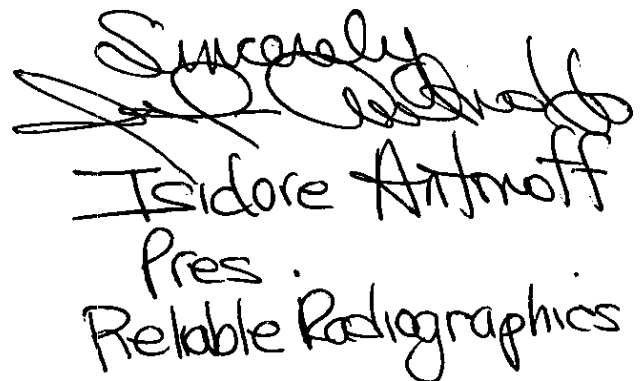 Sincerely
Isidore Antonoff
Pres.
Reliable Radiographics